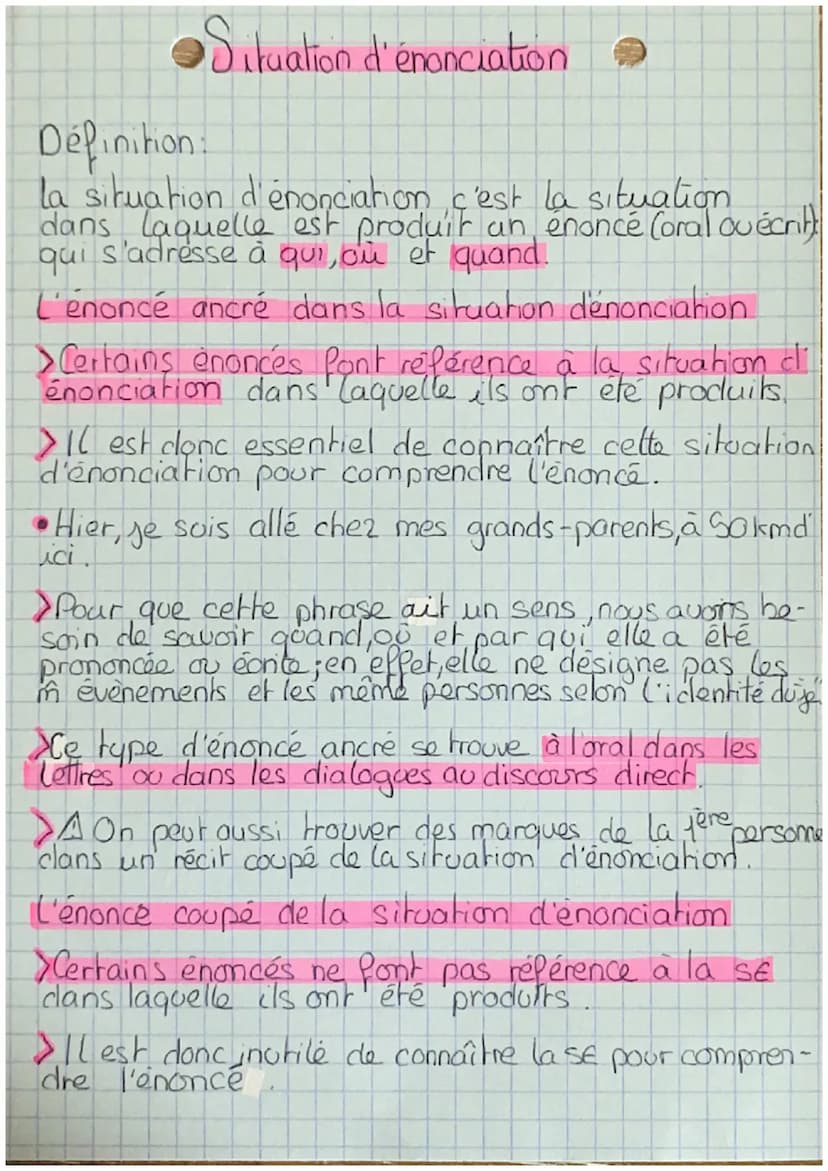 Situation d'énonciation
Définition:
la situation d'énonciation c'est la situation
dans laquelle est produit un énoncé (oral ou écrit)
qui s'adresse à qui, où et quand.
L'énoncé ancré dans la situation d'énonciation
>Certains énoncés font référence à la situation d'
énonciation dans laquelle ils ont été produits.
>Il est donc essentiel de connaître cette situation
d'énonciation pour comprendre l'énoncé.
•Hier, je suis allé chez mes grands-parents, à 50km d'
ici.
>Pour que cette phrase ait un sens, nous avons be-
soin de savoir quand, où et par qui elle a été
prononcée ou écrite; en effet, elle ne désigne pas les
m̂ évènements et les même personnes selon l'identité du "je"
>Ce type d'énoncé ancré se trouve à l'oral dans les
lettres ou dans les dialogues au discours direct.
>⚠ On peut aussi trouver des marques de la 1ère personne
dans un récit coupé de la situation d'énonciation.
L'énoncé coupé de la situation d'énonciation
>Certains énoncés ne font pas référence à la SE
dans laquelle ils ont été produits.
>Il est donc inutile de connaître la SE pour compren-
dre l'énoncé.